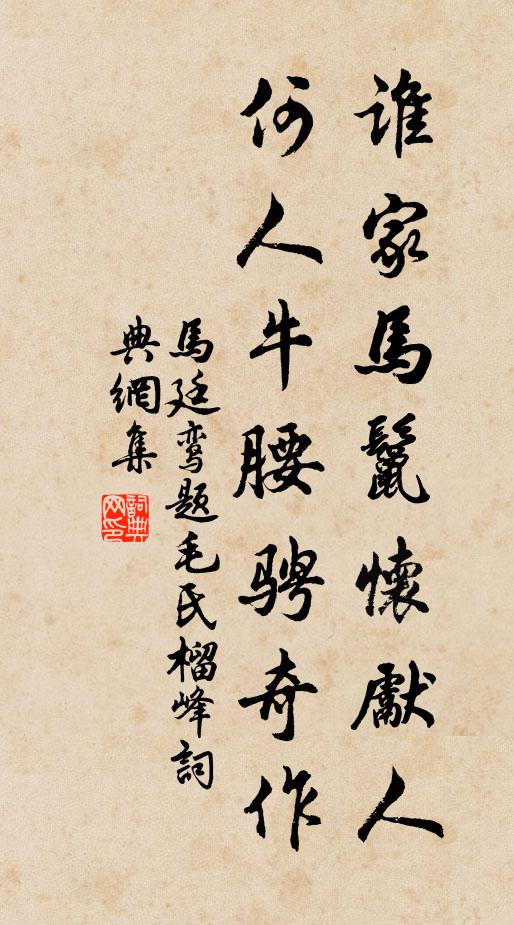 谁家馬鬣懷獻人
何人牛腰骋奇作
馬廷鸾题毛氏榴峰詞
典網集
詞典网印